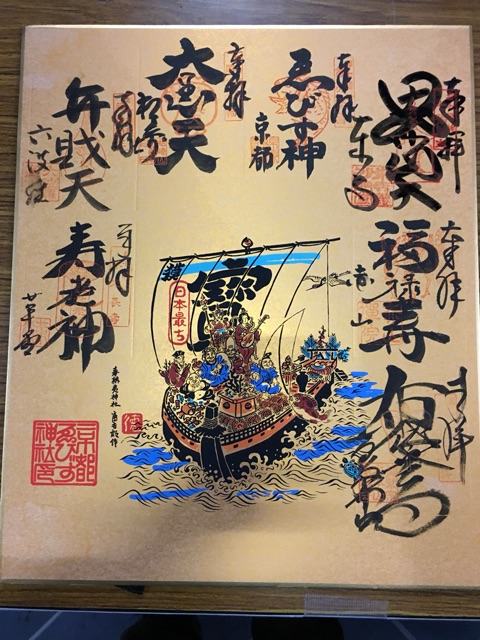 奉拝
毘沙門天
東寺
奉拝
福禄寿
赤山
奉拝
布袋尊
奉拝
ゑびす神
京都
奉拝
大黒天
松ヶ崎
奉拝
弁財天
六波羅
奉拝
寿老神
革堂
宝
日本最古
京都
ゑびす
神社印